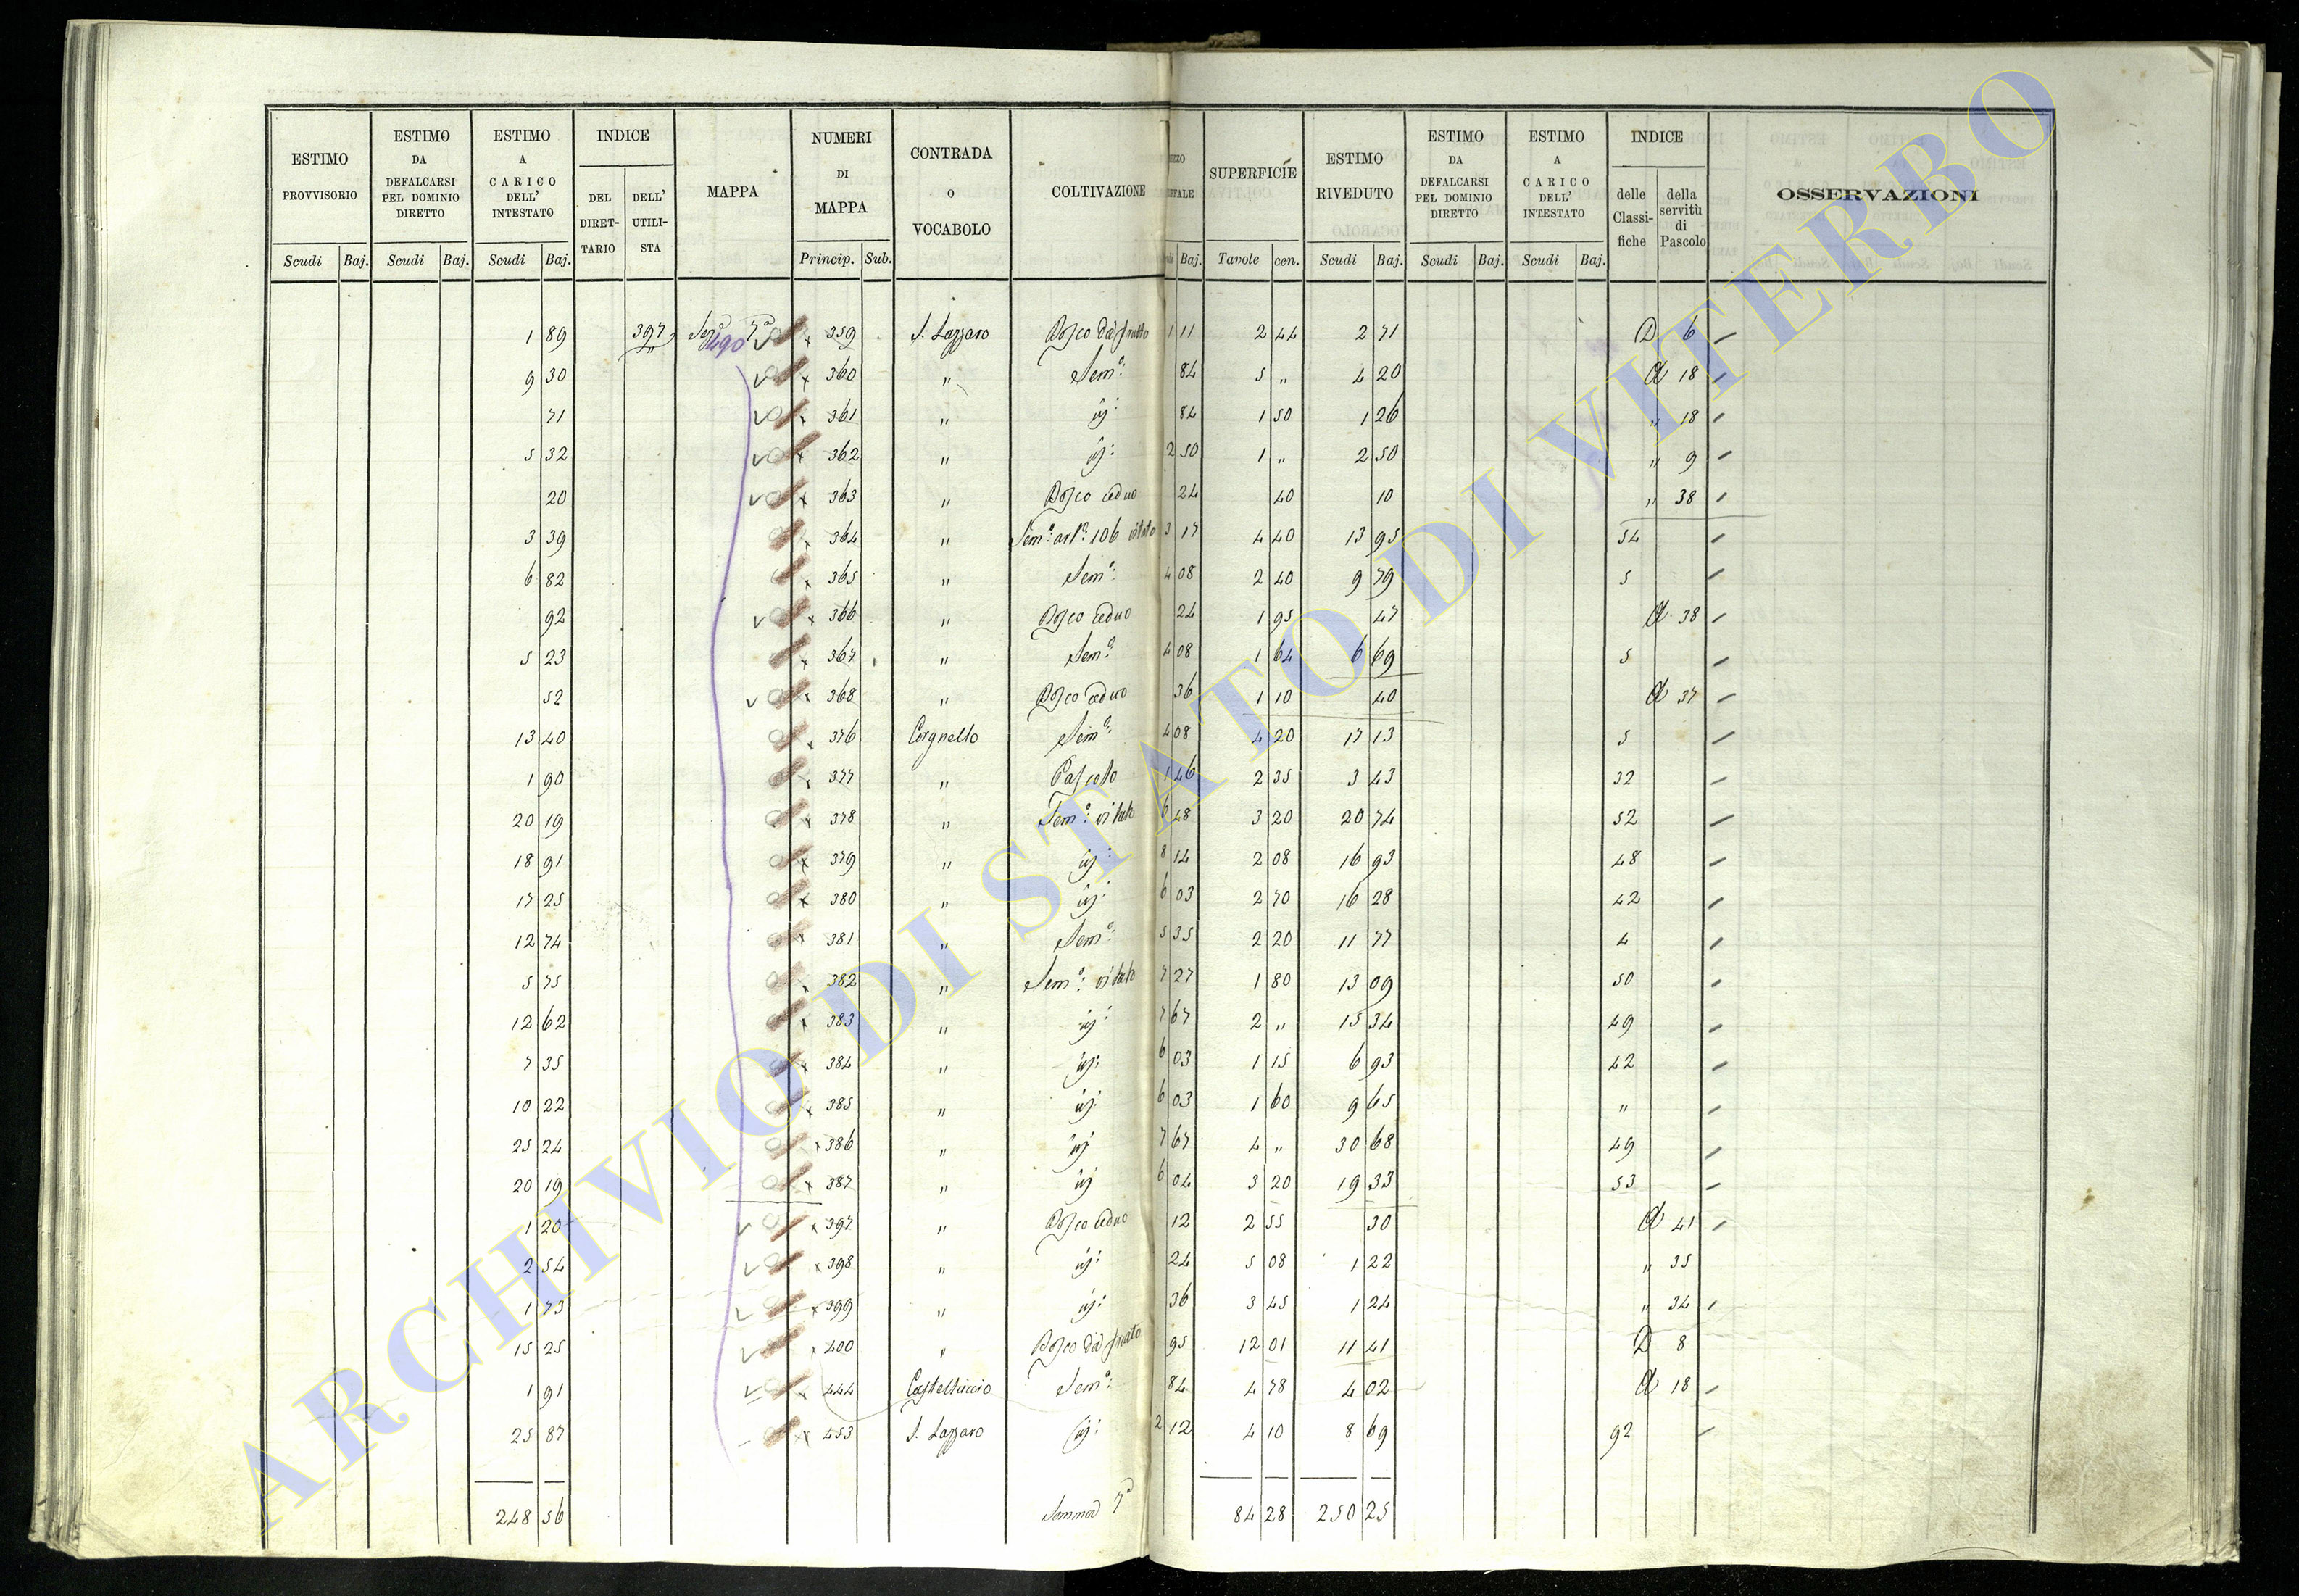 ESTIMO PROVVISORIO | ESTIMO DA DEFALCARSI PEL DOMINIO DIRETTO | ESTIMO A CARICO DELL' INTESTATO | INDICE | MAPPA | NUMERI DI MAPPA | CONTRADA O VOCABOLO | COLTIVAZIONE | SUPERFICIE | ESTIMO RIVEDUTO | ESTIMO DA DEFALCARSI PEL DOMINIO DIRETTO | ESTIMO A CARICO DELL' INTESTATO | INDICE | OSSERVAZIONI
DEL DIRETTARIO | DELL' UTILISTA | delle Classifiche | della servitù di Pascolo
Scudi | Baj. | Scudi | Baj. | Scudi | Baj. | Princip. | Sub. | Baj. | Tavole | cen. | Scudi | Baj. | Scudi | Baj. | Scudi | Baj.
1 89 | 397 | 7a | 359 | S. Lazzaro | Bosco da frutto | 1 11 | 2 44 | 2 71 | D 6
9 30 | 360 | " | Sem.o | 84 | 5 " | 4 20 | A 18
71 | 361 | " | id: | 84 | 1 50 | 1 26 | " 18
5 32 | 362 | " | id: | 2 50 | 1 " | 2 50 | " 9
20 | 363 | " | Bosco ceduo | 24 | 40 | 10 | " 38
3 39 | 364 | " | Sem.o 106 vitato | 3 17 | 4 40 | 13 95 | 54
6 82 | 365 | " | Sem.o | 4 08 | 2 40 | 9 79 | 5
92 | 366 | " | Bosco ceduo | 24 | 1 95 | 47 | A 38
5 23 | 367 | " | Sem.o | 4 08 | 1 64 | 6 69 | 5
52 | 368 | " | Bosco ceduo | 36 | 1 10 | 40 | A 37
13 40 | 376 | Corgnello | Sem.o | 4 08 | 4 20 | 17 13 | 5
1 90 | 377 | " | Pascolo | 1 46 | 2 35 | 3 43 | 32
20 19 | 378 | " | Sem.o vitato | 6 48 | 3 20 | 20 74 | 52
18 91 | 379 | " | id: | 8 14 | 2 08 | 16 93 | 48
17 25 | 380 | " | id: | 6 03 | 2 70 | 16 28 | 42
12 74 | 381 | " | Sem.o | 5 35 | 2 20 | 11 77 | 4
5 75 | 382 | " | Sem.o vitato | 7 27 | 1 80 | 13 09 | 50
12 62 | 383 | " | id: | 7 67 | 2 " | 15 34 | 49
7 35 | 384 | " | id: | 6 03 | 1 15 | 6 93 | 42
10 22 | 385 | " | id: | 6 03 | 1 60 | 9 65 | "
25 24 | 386 | " | id | 7 67 | 4 " | 30 68 | 49
20 19 | 387 | " | id | 6 04 | 3 20 | 19 33 | 53
1 20 | 397 | " | Bosco ceduo | 12 | 2 55 | 30 | A 41
2 54 | 398 | " | id: | 24 | 5 08 | 1 22 | " 35
1 73 | 399 | " | id: | 36 | 3 45 | 1 24 | " 34
15 25 | 400 | " | Bosco da frutto | 95 | 12 01 | 11 41 | D 8
1 91 | 444 | Castelluccio | Sem.o | 84 | 4 78 | 4 02 | A 18
25 87 | 453 | S. Lazzaro | id: | 2 12 | 4 10 | 8 69 | 92
248 56 | 84 28 | 250 25
ARCHIVIO DI STATO DI VITERBO